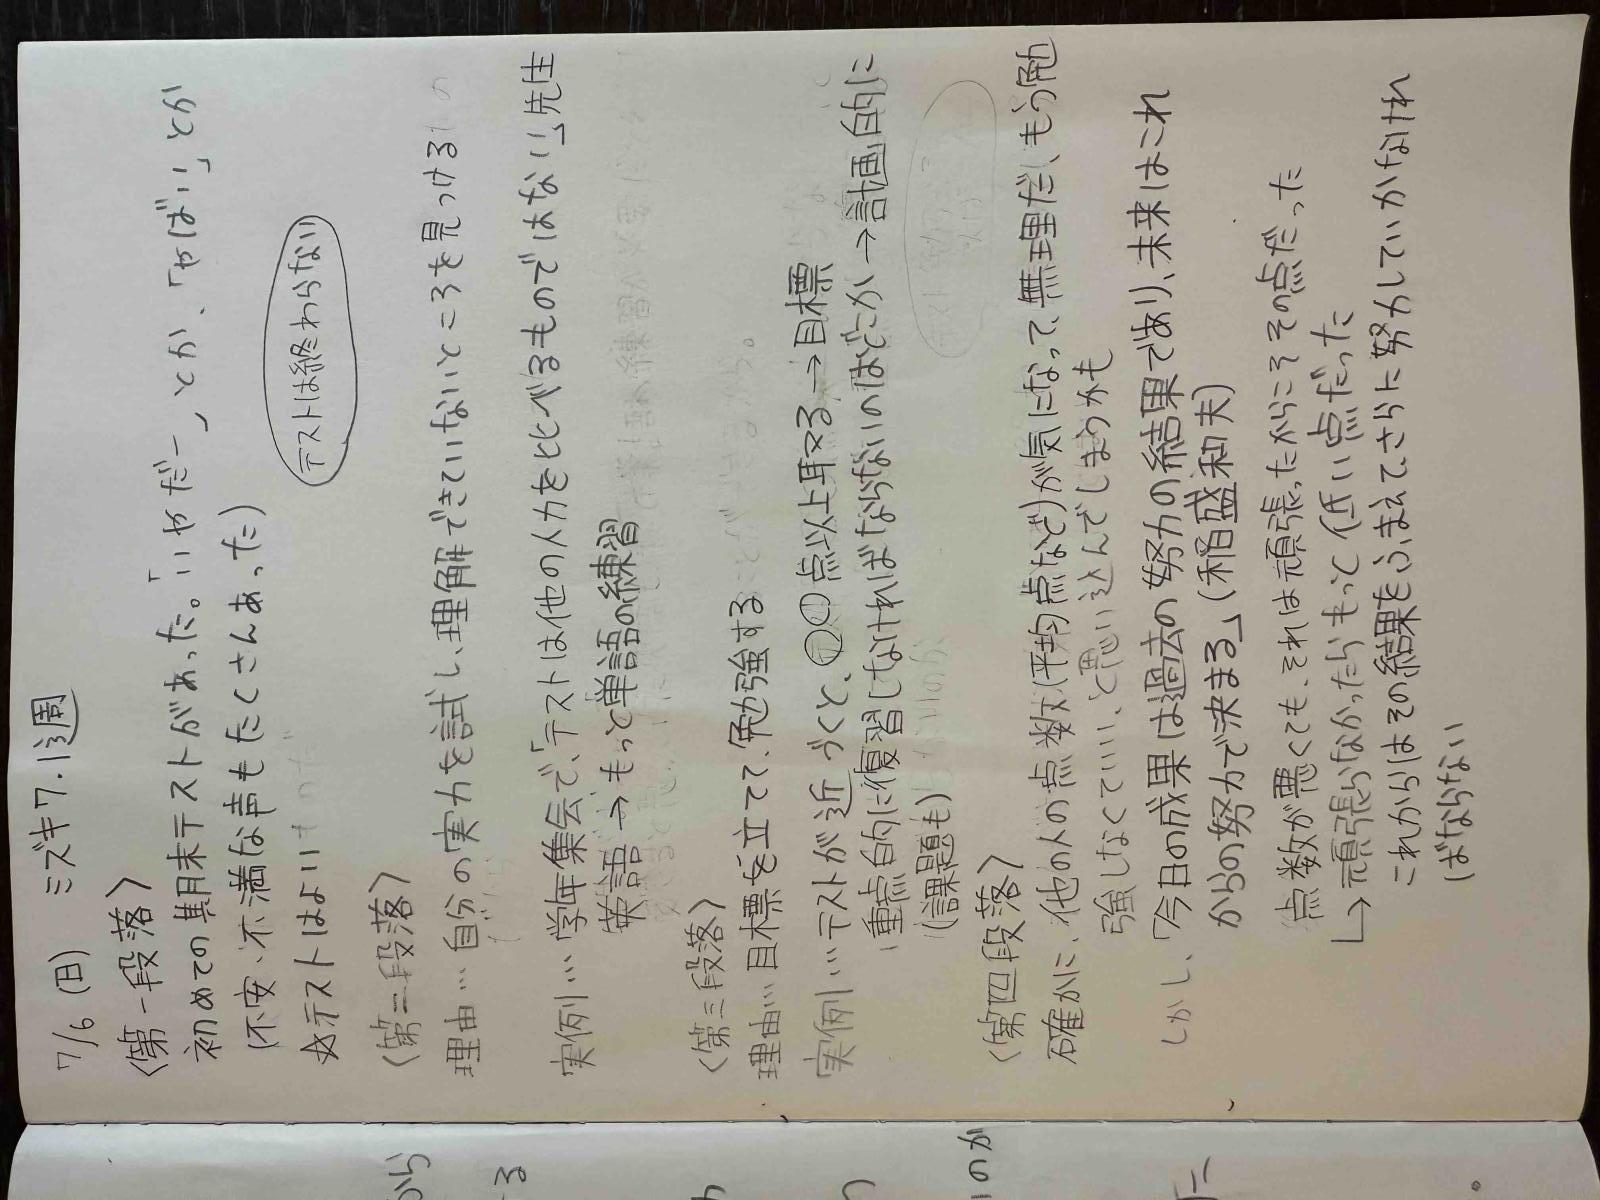 7/6(日) ミズキ7.1週
〈第一段落〉
初めての期末テストがあった。「いやだー」とか、「やばい」とか
(不安、不満な声もたくさんあった)
☆テストはよい
テストは終わらない
〈第二段落〉
理由…自分の実力を試し、理解できていないところを見つける
実例…学年集会で、「テストは他の人力を比べるものではない」先生
英語→もっと単語の練習
〈第三段落〉
理由…目標を立てて、勉強する
実例…テストが近づくと、〇〇点以上取る→目標
重点的に復習しなければならないのはどこか→計画的に
(課題も)
〈第四段落〉
確かに、他の人の点数(平均点など)が気になって、無理だし、もう勉
強しなくていい、と思い込んでしまうかも
しかし、「今日の成果は過去の努力の結果であり、未来はこれ
からの努力で決まる」(稲盛和夫)
点数が悪くても、それは頑張ったからこそその点だった
→頑張らなかったらもって低い点だった
これからはその結果をふまえて、さらに努力していかなけれ
ばならない
から
る
のか